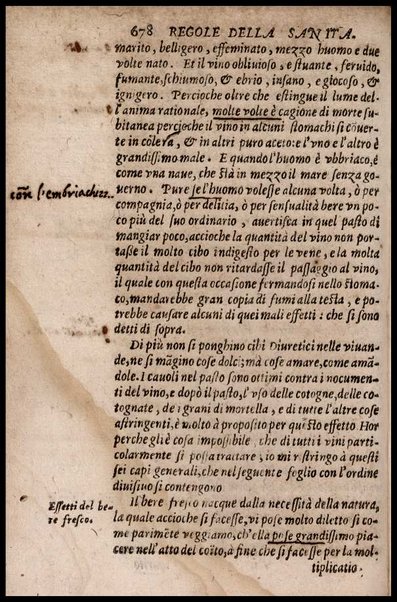 678 REGOLE DELLA SANITA.
marito, belligero, effeminato, mezzo huomo e due
volte nato. Et il vino obliuioso, e stuante, feruido,
fumante, schiumoso, & ebrio, insano, e giocoso, &
ignigero. Percioche oltre che estingue il lume del-
l'anima rationale, molte volte è cagione di morte su-
bitanea percioche il vino in alcuni stomachi si cōuer-
te in colera, & in altri puro aceto: l'vno e l'altro è
grandissimo male. E quando l'huomo è vbbriaco, è
come vna naue, che stà in mezzo il mare senza go-
uerno. Pure se l'huomo volesse alcuna volta, ò per
cōn l'embriachizz..
compagnia, ò per delitia, ò per sensualità bere vn po
co più del suo ordinario, auertisca in quel pasto di
mangiar poco, accioche la quantità del vino non por
taße il molto cibo indigesto per le vene, e la molta
quantità del cibo non ritardasse il passaggio al vino,
il quale con questa occasione fermandosi nello stoma-
co, mandarebbe gran copia di fumi alla testa, e po-
trebbe causare alcuni di quei mali effetti: che si sono
detti di sopra.
Di più non si ponghino cibi Diuretici nelle viuan-
de, ne si māgino cose dolci; mà cose amare, come amā-
dole. I cauoli nel pasto sono ottimi contra i nocumen-
ti del vino, e dopò il pasto, l'vso delle cotogne, delle co-
tognate, de i grani di mortella, e di tutte l'altre cose
astringenti, è molto à proposito per q̄sto effetto Hor
perche gli è cosa impossibile, che di tutti i vini parti-
colarmente si possa trattare, io mi ristringo à questi
sei capi generali, che nel seguente foglio con l'ordine
diuisiuo si contengono
Effetti del be
re fresco.
Il bere fresco nacque dalla necessità della natura,
la quale accioche si facesse, vi pose molto diletto si co-
me parimēte veggiamo, ch'ella pose grandissimo pia-
cere nell'atto del coito, à fine che si facesse per la mol-
tiplicatio-